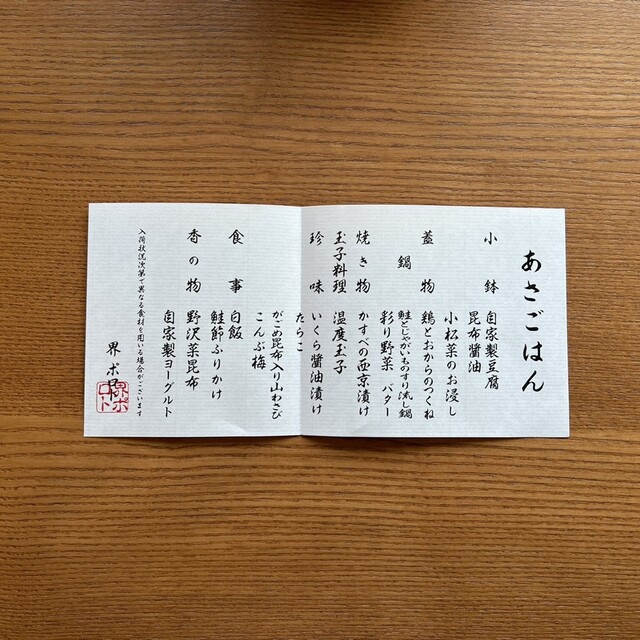 あさごはん
小鉢 自家製豆腐
昆布醤油
小松菜のお浸し
蓋物 鶏とおからのつくね
鍋 鮭とじゃがいものすり流し鍋
彩り野菜 バター
焼き物 かすべの西京漬け
玉子料理 温度玉子
珍味 いくら醤油漬け
たらこ
がごめ昆布入り山わさび
こんぶ梅
食事 白飯
鮭節ふりかけ
香の物 野沢菜昆布
自家製ヨーグルト
入荷状況次第で異なる食材を用いる場合がございます
界 ポロト
界ポロト